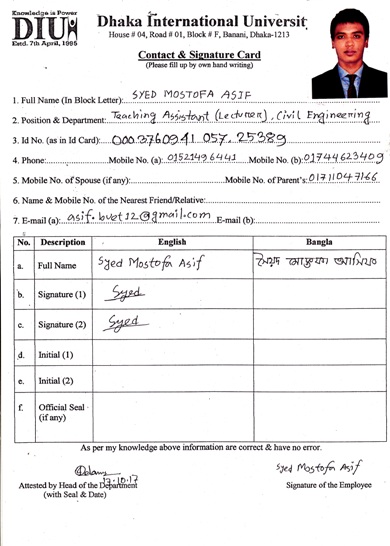 Knowledge is Power
DIU
Estd. 7th April, 1995
Dhaka International Universit
House # 04, Road # 01, Block # F, Banani, Dhaka-1213
Contact & Signature Card
(Please fill up by own hand writing)
1. Full Name (In Block Letter): SYED MOSTOFA ASIF
2. Position & Department: Teaching Assistant (Lecturer), Civil Engineering
3. Id No. (as in Id Card): 000.3760941 057. 25389
4. Phone: Mobile No. (a): 01521496441 Mobile No. (b): 01744623409
5. Mobile No. of Spouse (if any): Mobile No. of Parent's: 01711047166
6. Name & Mobile No. of the Nearest Friend/Relative:
7. E-mail (a): asif.buet12@gmail.com E-mail (b):
No. Description English Bangla
a. Full Name Syed Mostofa Asif সৈয়দ মোস্তফা আসিফ
b. Signature (1) Syed
c. Signature (2) Syed
d. Initial (1)
e. Initial (2)
f. Official Seal (if any)
As per my knowledge above information are correct & have no error.
17.10.17
Syed Mostofa Asif
Attested by Head of the Department
(with Seal & Date)
Signature of the Employee